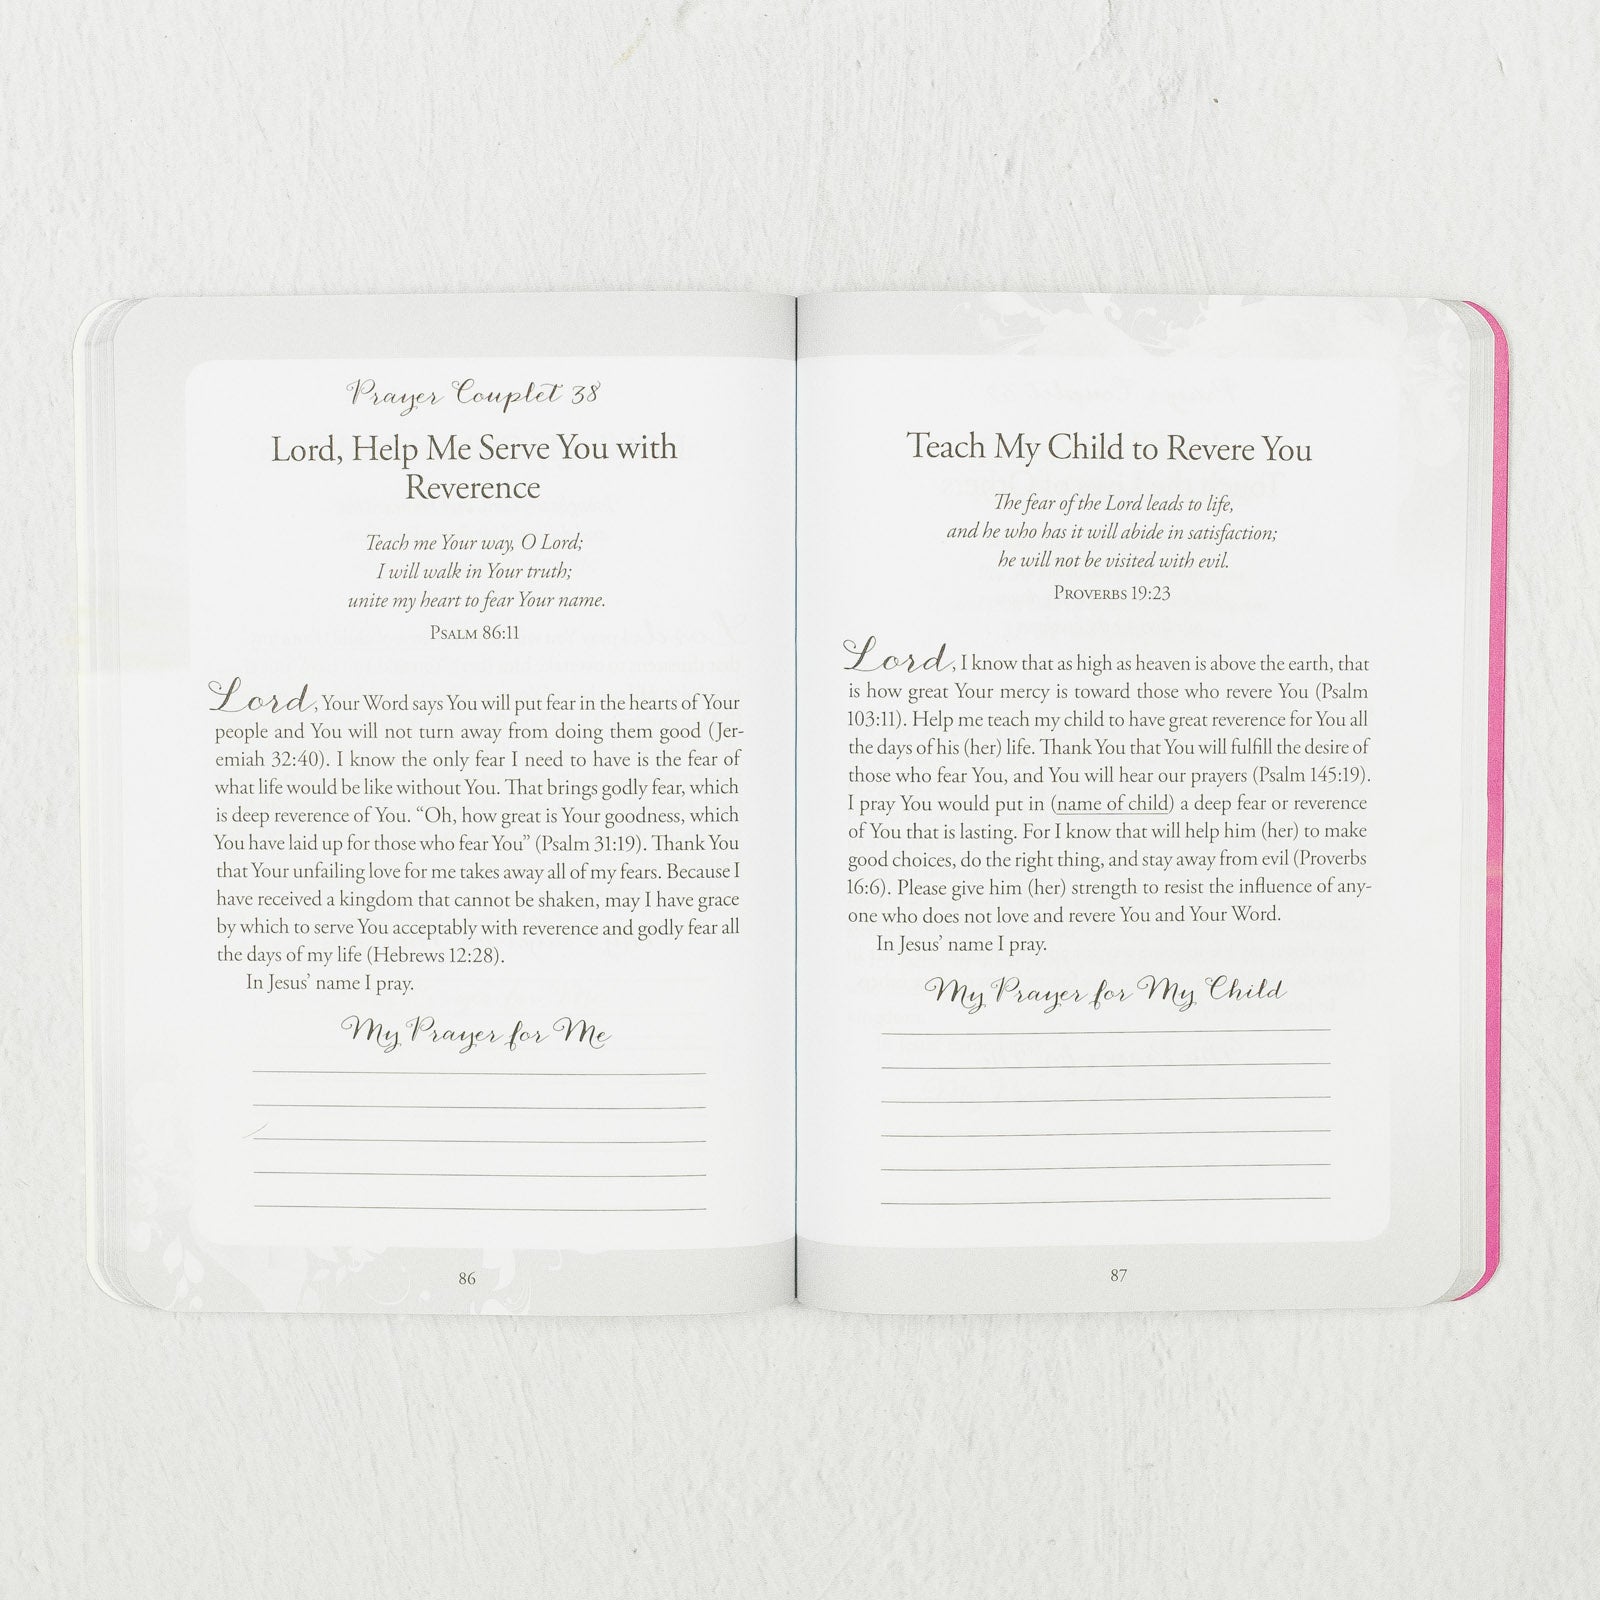 Prayer Couplet 38
Lord, Help Me Serve You with
Reverence
Teach me Your way, O Lord;
I will walk in Your truth;
unite my heart to fear Your name.
Psalm 86:11
Lord, Your Word says You will put fear in the hearts of Your
people and You will not turn away from doing them good (Jer-
emiah 32:40). I know the only fear I need to have is the fear of
what life would be like without You. That brings godly fear, which
is deep reverence of You. “Oh, how great is Your goodness, which
You have laid up for those who fear You” (Psalm 31:19). Thank You
that Your unfailing love for me takes away all of my fears. Because I
have received a kingdom that cannot be shaken, may I have grace
by which to serve You acceptably with reverence and godly fear all
the days of my life (Hebrews 12:28).
In Jesus’ name I pray.
My Prayer for Me
86
Teach My Child to Revere You
The fear of the Lord leads to life,
and he who has it will abide in satisfaction;
he will not be visited with evil.
Proverbs 19:23
Lord, I know that as high as heaven is above the earth, that
is how great Your mercy is toward those who revere You (Psalm
103:11). Help me teach my child to have great reverence for You all
the days of his (her) life. Thank You that You will fulfill the desire of
those who fear You, and You will hear our prayers (Psalm 145:19).
I pray You would put in (name of child) a deep fear or reverence
of You that is lasting. For I know that will help him (her) to make
good choices, do the right thing, and stay away from evil (Proverbs
16:6). Please give him (her) strength to resist the influence of any-
one who does not love and revere You and Your Word.
In Jesus’ name I pray.
My Prayer for My Child
87